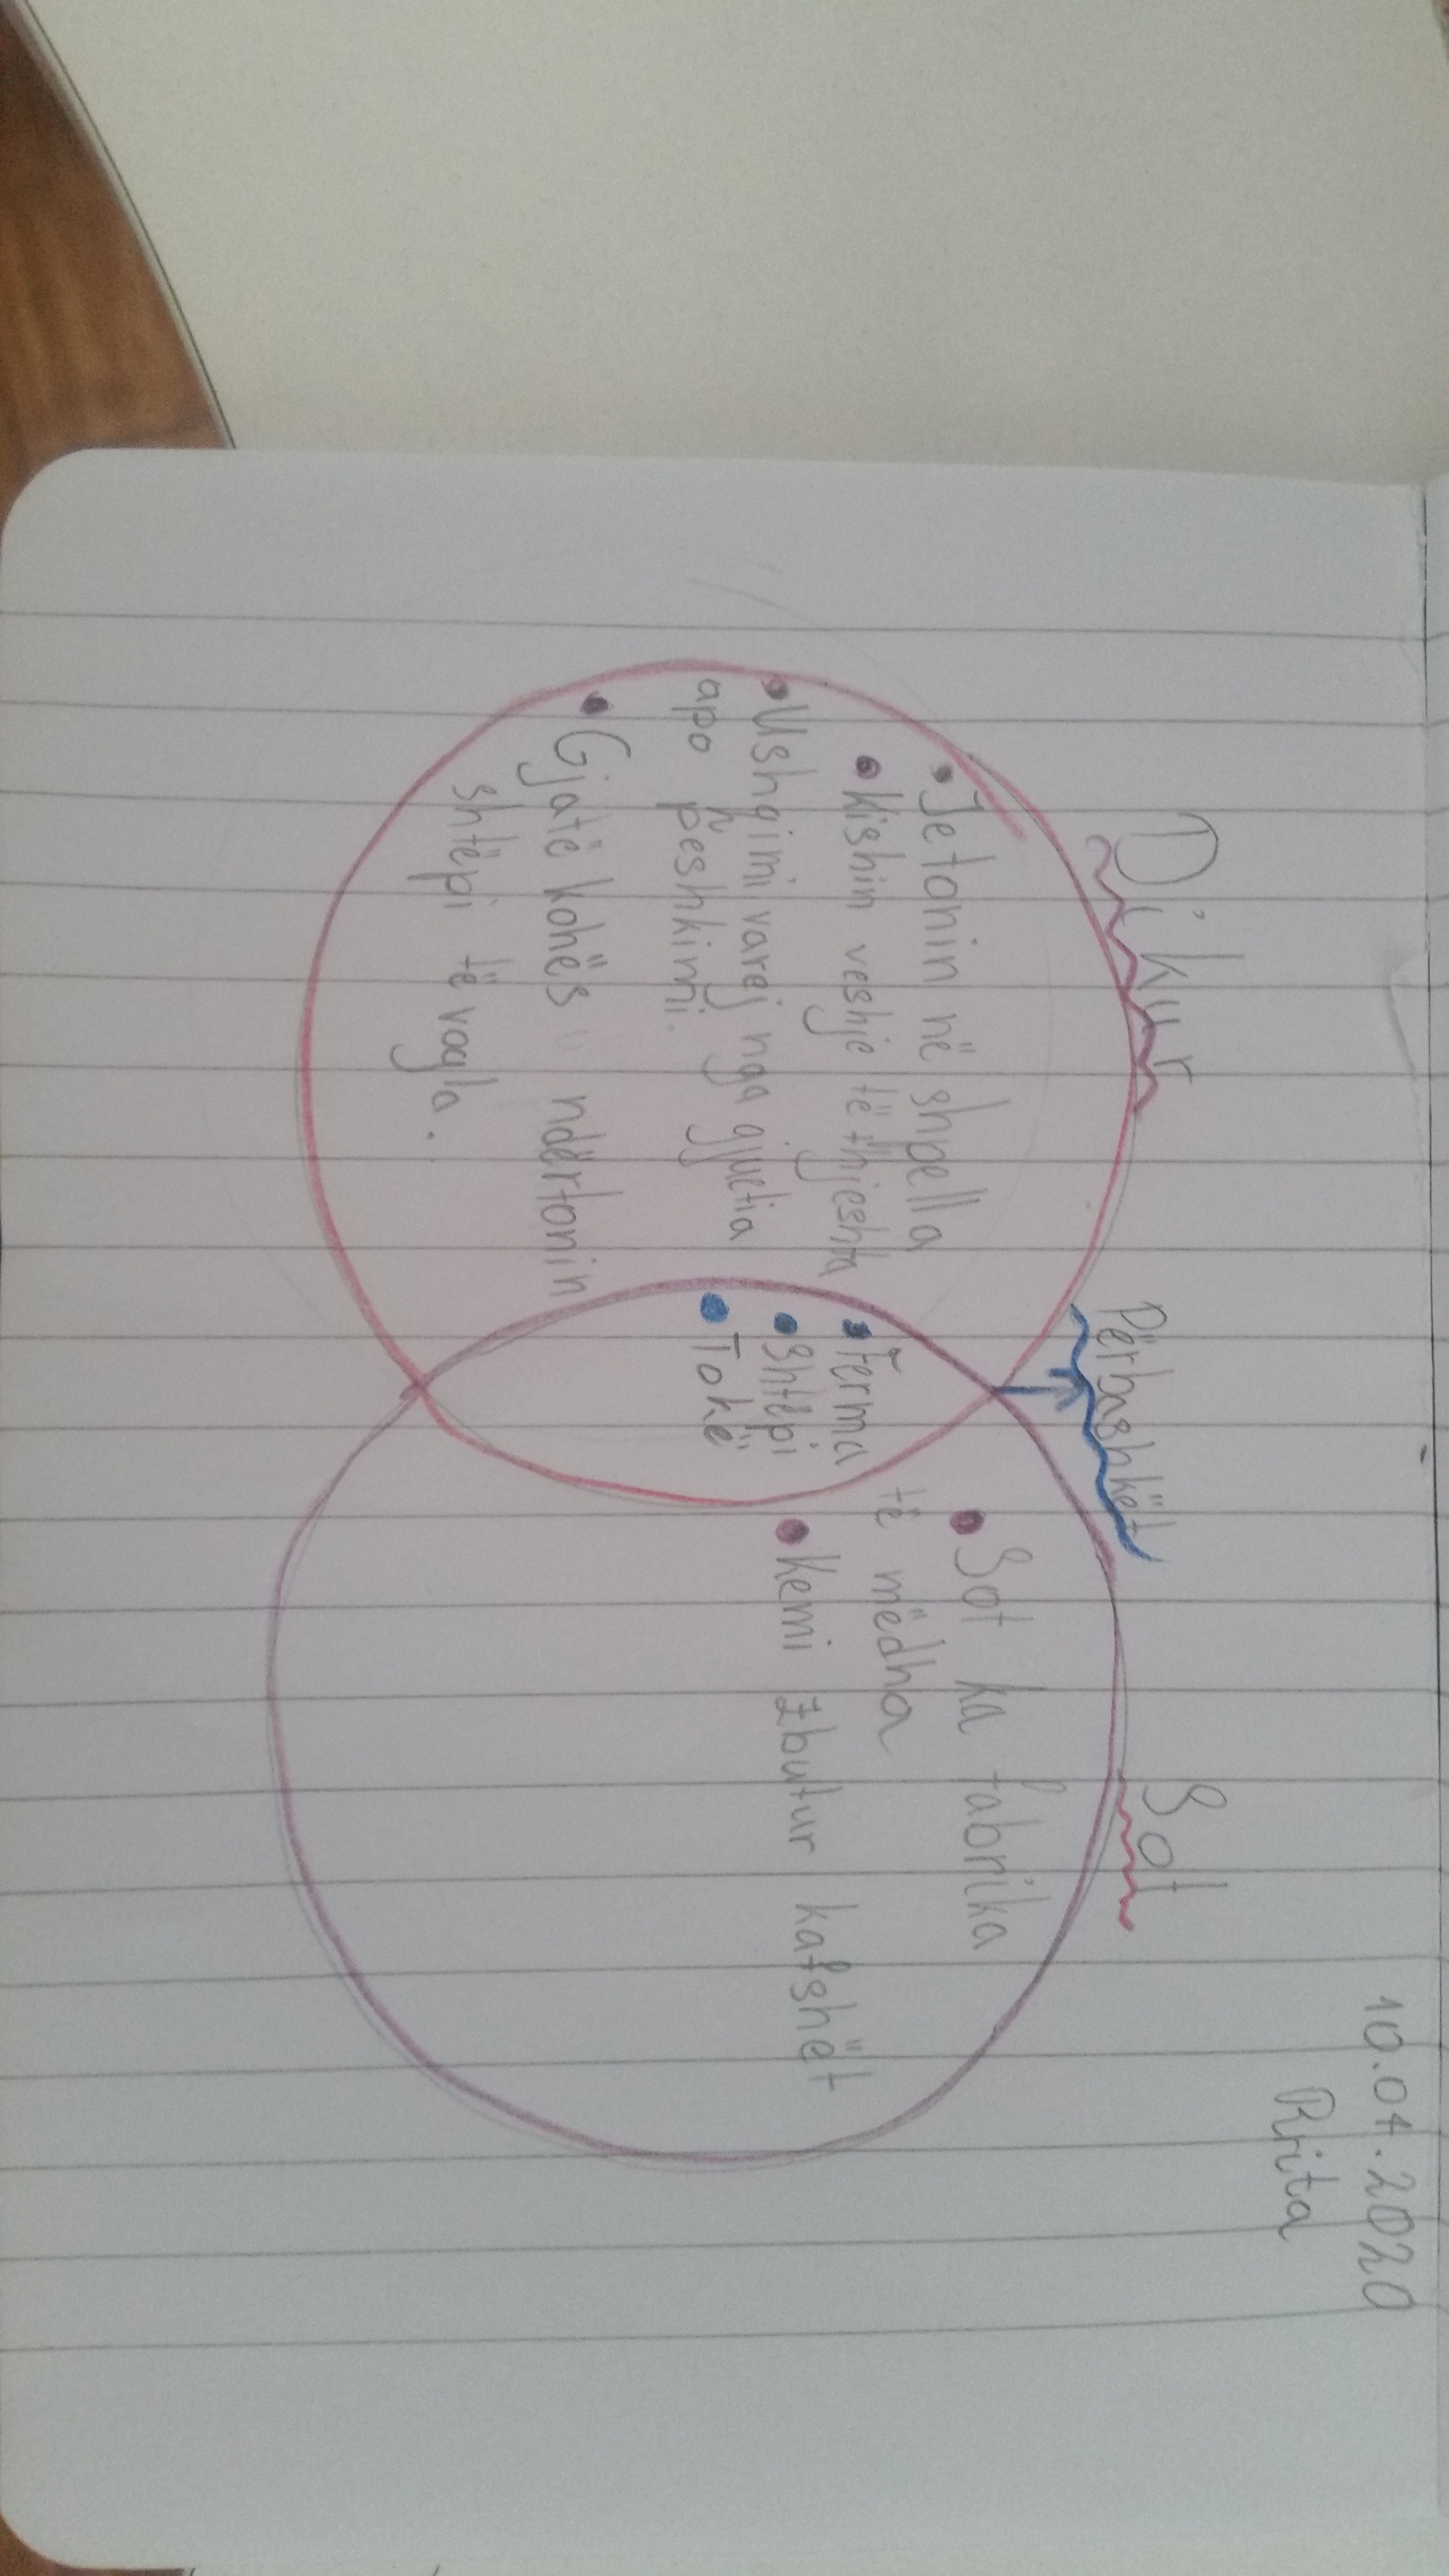 10.04.2020
Rrita
Dikur
Përbashkët
Sot
• Jetonin në shpella
• Kishin veshje të thjeshta
• Ushqimi varej nga gjuetia
apo peshkimi.
• Gjatë kohës ndërtonin
shtëpi të vogla.
• Ferma
• Shtëpi
• Tokë
• Sot ka fabrika
të mëdha
• Kemi zbutur kafshët